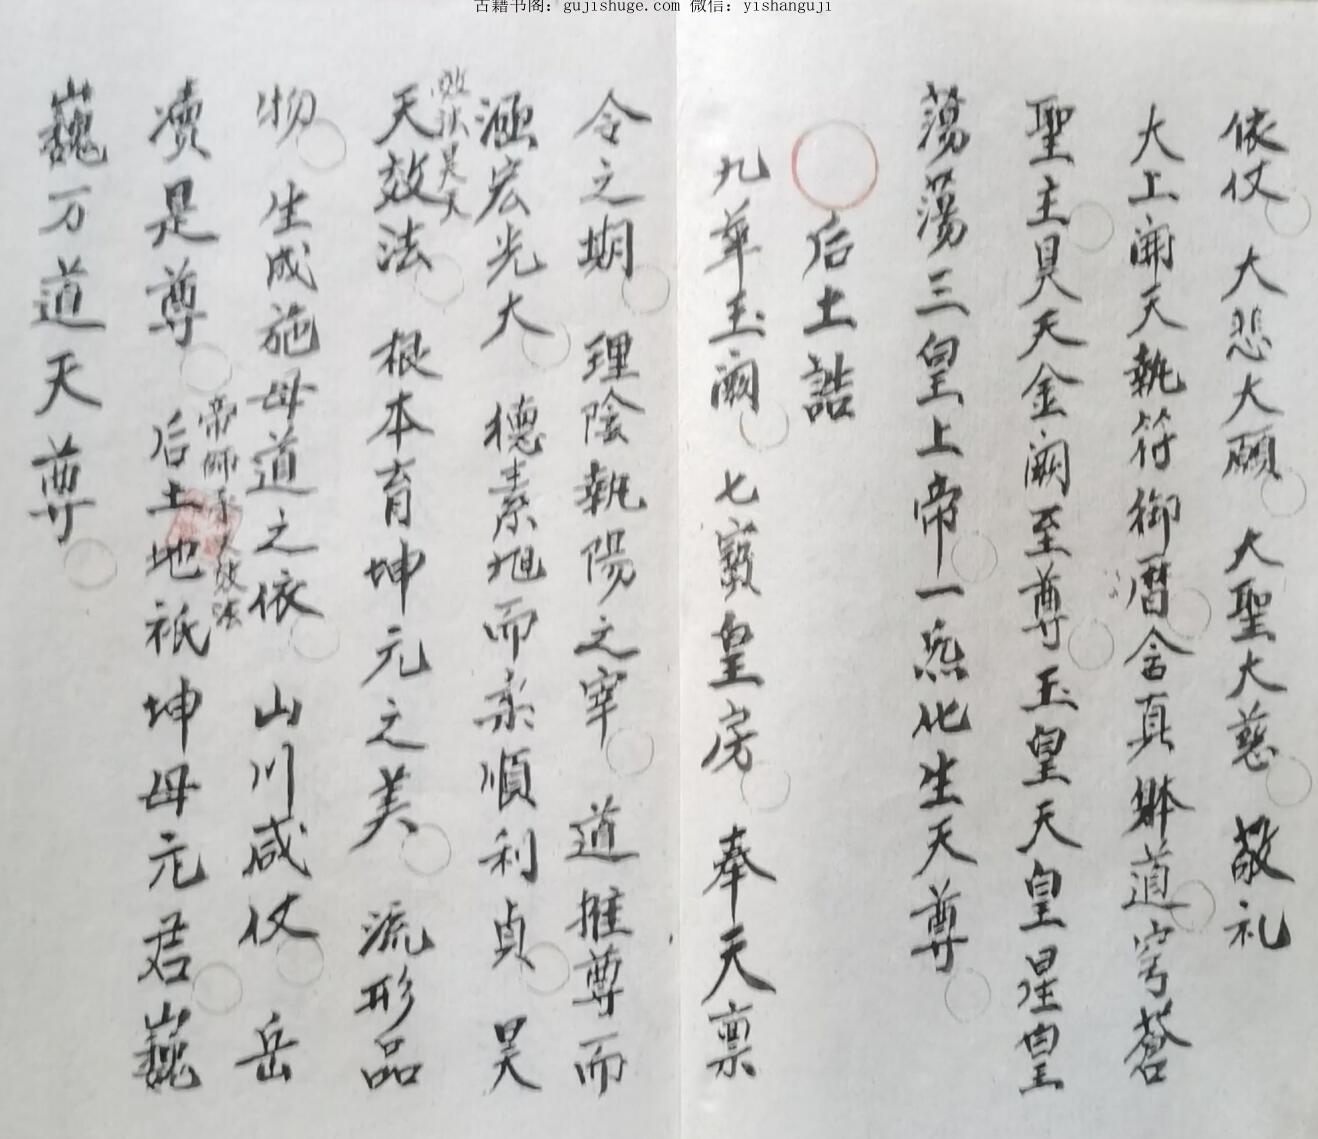 古籍书阁：gujishuge.com 微信：yishanguji
依仗 大悲大願 大聖大慈 敬礼
大上開天執符御曆含真躰道穹蒼
聖主昊天金闕至尊玉皇天皇星皇
蕩蕩三皇上帝一炁化生天尊
后土誥
九華玉闕 七寶皇房 奉天禀
令之期 理陰執陽之宰 道推尊而
涵宏光大 德素旭而柔順利貞 昊
效法昊天
天效法 根本育坤元之美 流形品
物 生成施母道之依 山川咸仗 岳
帝師 效法
瀆是尊 后土地祇 坤母元君 巍
巍万道天尊